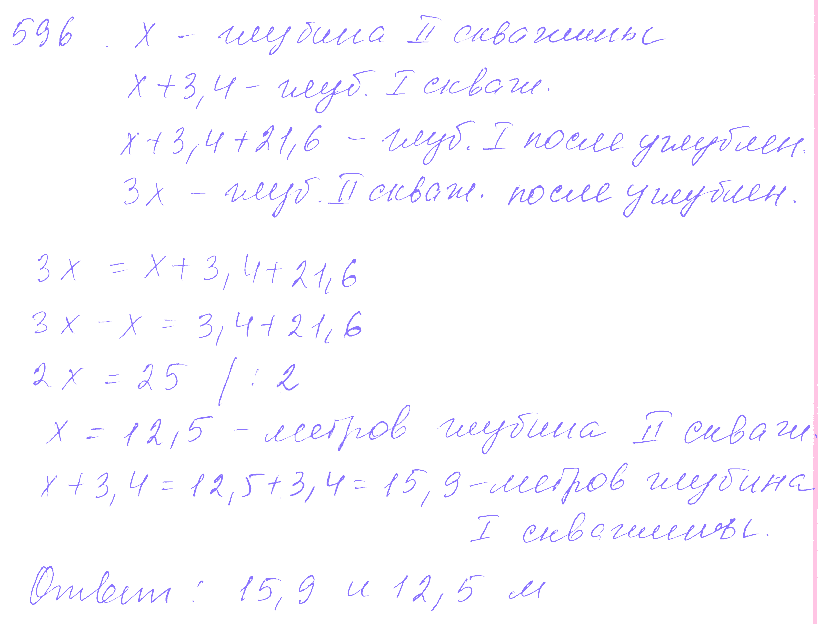 596. x – глубина II скважины
x + 3,4 – глуб. I скваж.
x + 3,4 + 21,6 – глуб. I после углублен.
3x – глуб. II скваж. после углублен.
3x = x + 3,4 + 21,6
3x – x = 3,4 + 21,6
2x = 25 / : 2
x = 12,5 – метров глубина II скваж.
x + 3,4 = 12,5 + 3,4 = 15,9 – метров глубина
I скважины.
Ответ: 15,9 и 12,5 м